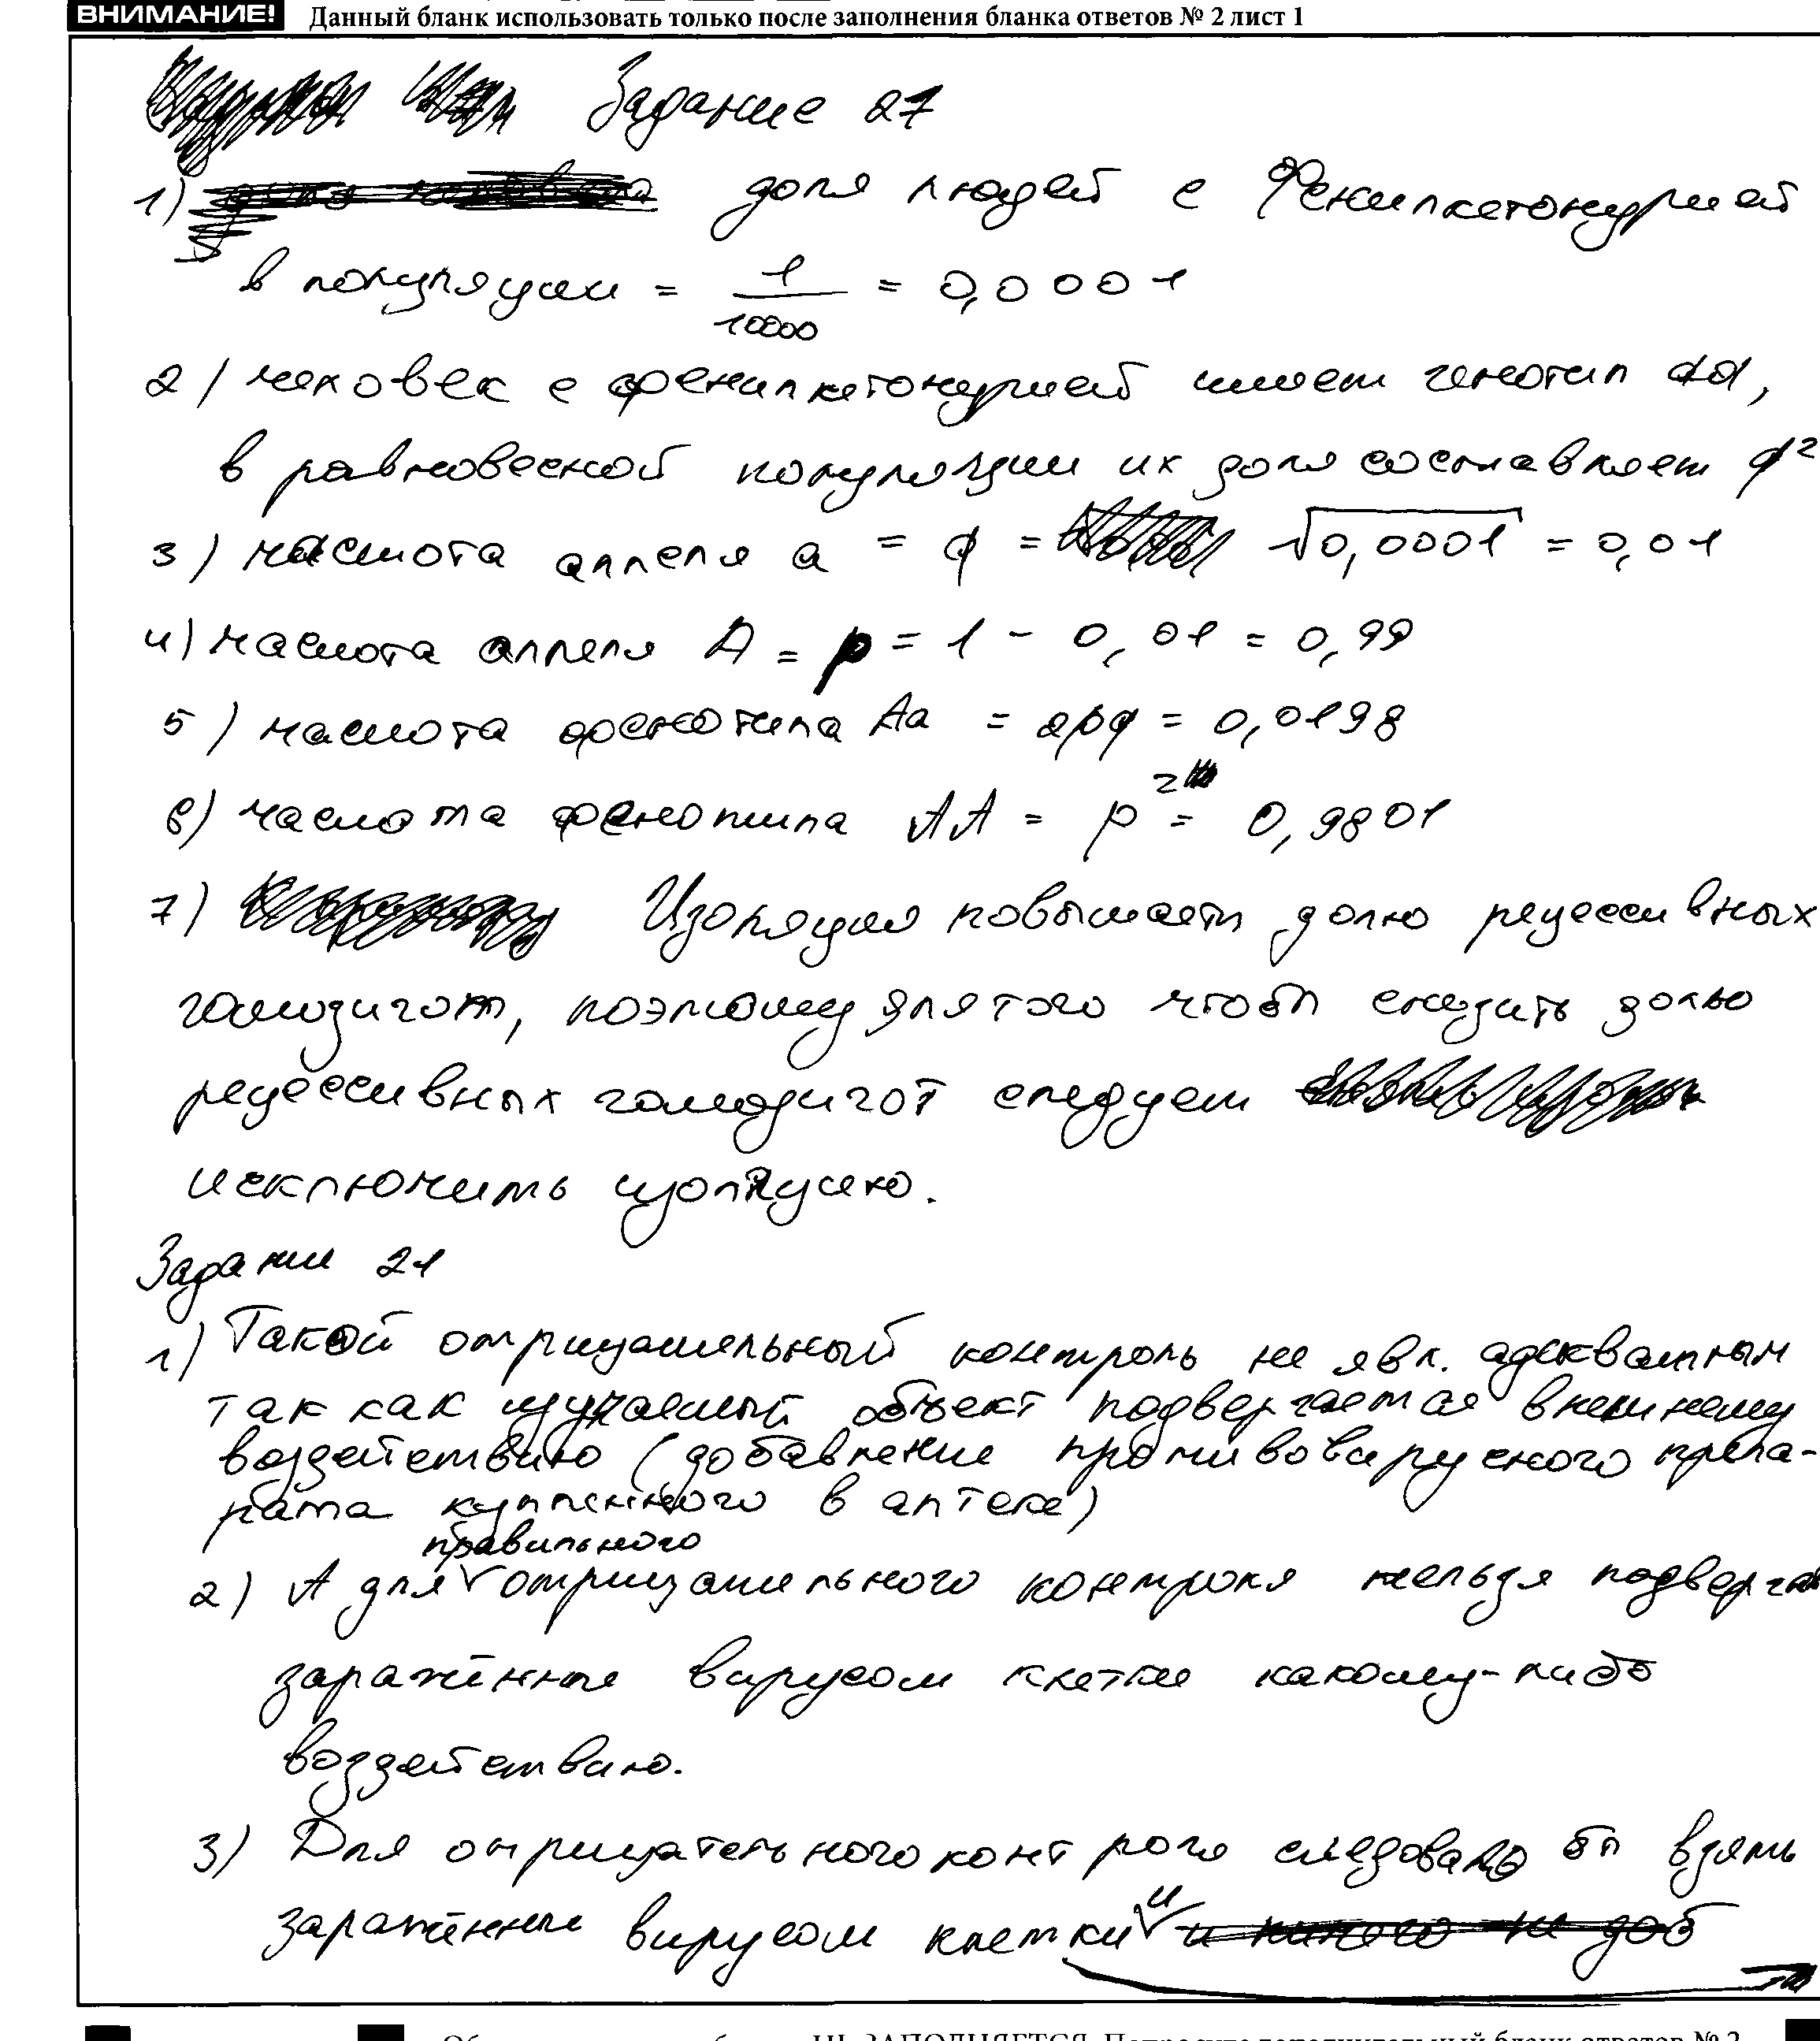 ВНИМАНИЕ! Данный бланк использовать только после заполнения бланка ответов № 2 лист 1
Задание 27
1) доля людей с Фенилкетонурией
в популяции = 1/10000 = 0,0001
2) человек с фенилкетонурией имеет генотип aa,
в равновесной популяции их доля составляет q²
3) частота аллеля a = q = √0,0001 = 0,01
4) частота аллеля A = p = 1 - 0,01 = 0,99
5) частота фенотипа Aa = 2pq = 0,0198
6) частота фенотипа AA = p² = 0,9801
7) Изоляция повышает долю рецессивных
гомозигот, поэтому для того чтобы снизить долю
рецессивных гомозигот следует
исключить изоляцию.
Задание 21
1) Такой отрицательный контроль не явл. адекватным
так как изучаемый объект подвергается внешнему
воздействию (добавление противовирусного препа-
рата купленного в аптеке)
2) А для правильного отрицательного контроля нельзя подвергать
заражённые вирусом клетки какому-либо
воздействию.
3) Для отрицательного контроля следовало бы взять
заражённые вирусом клетки и